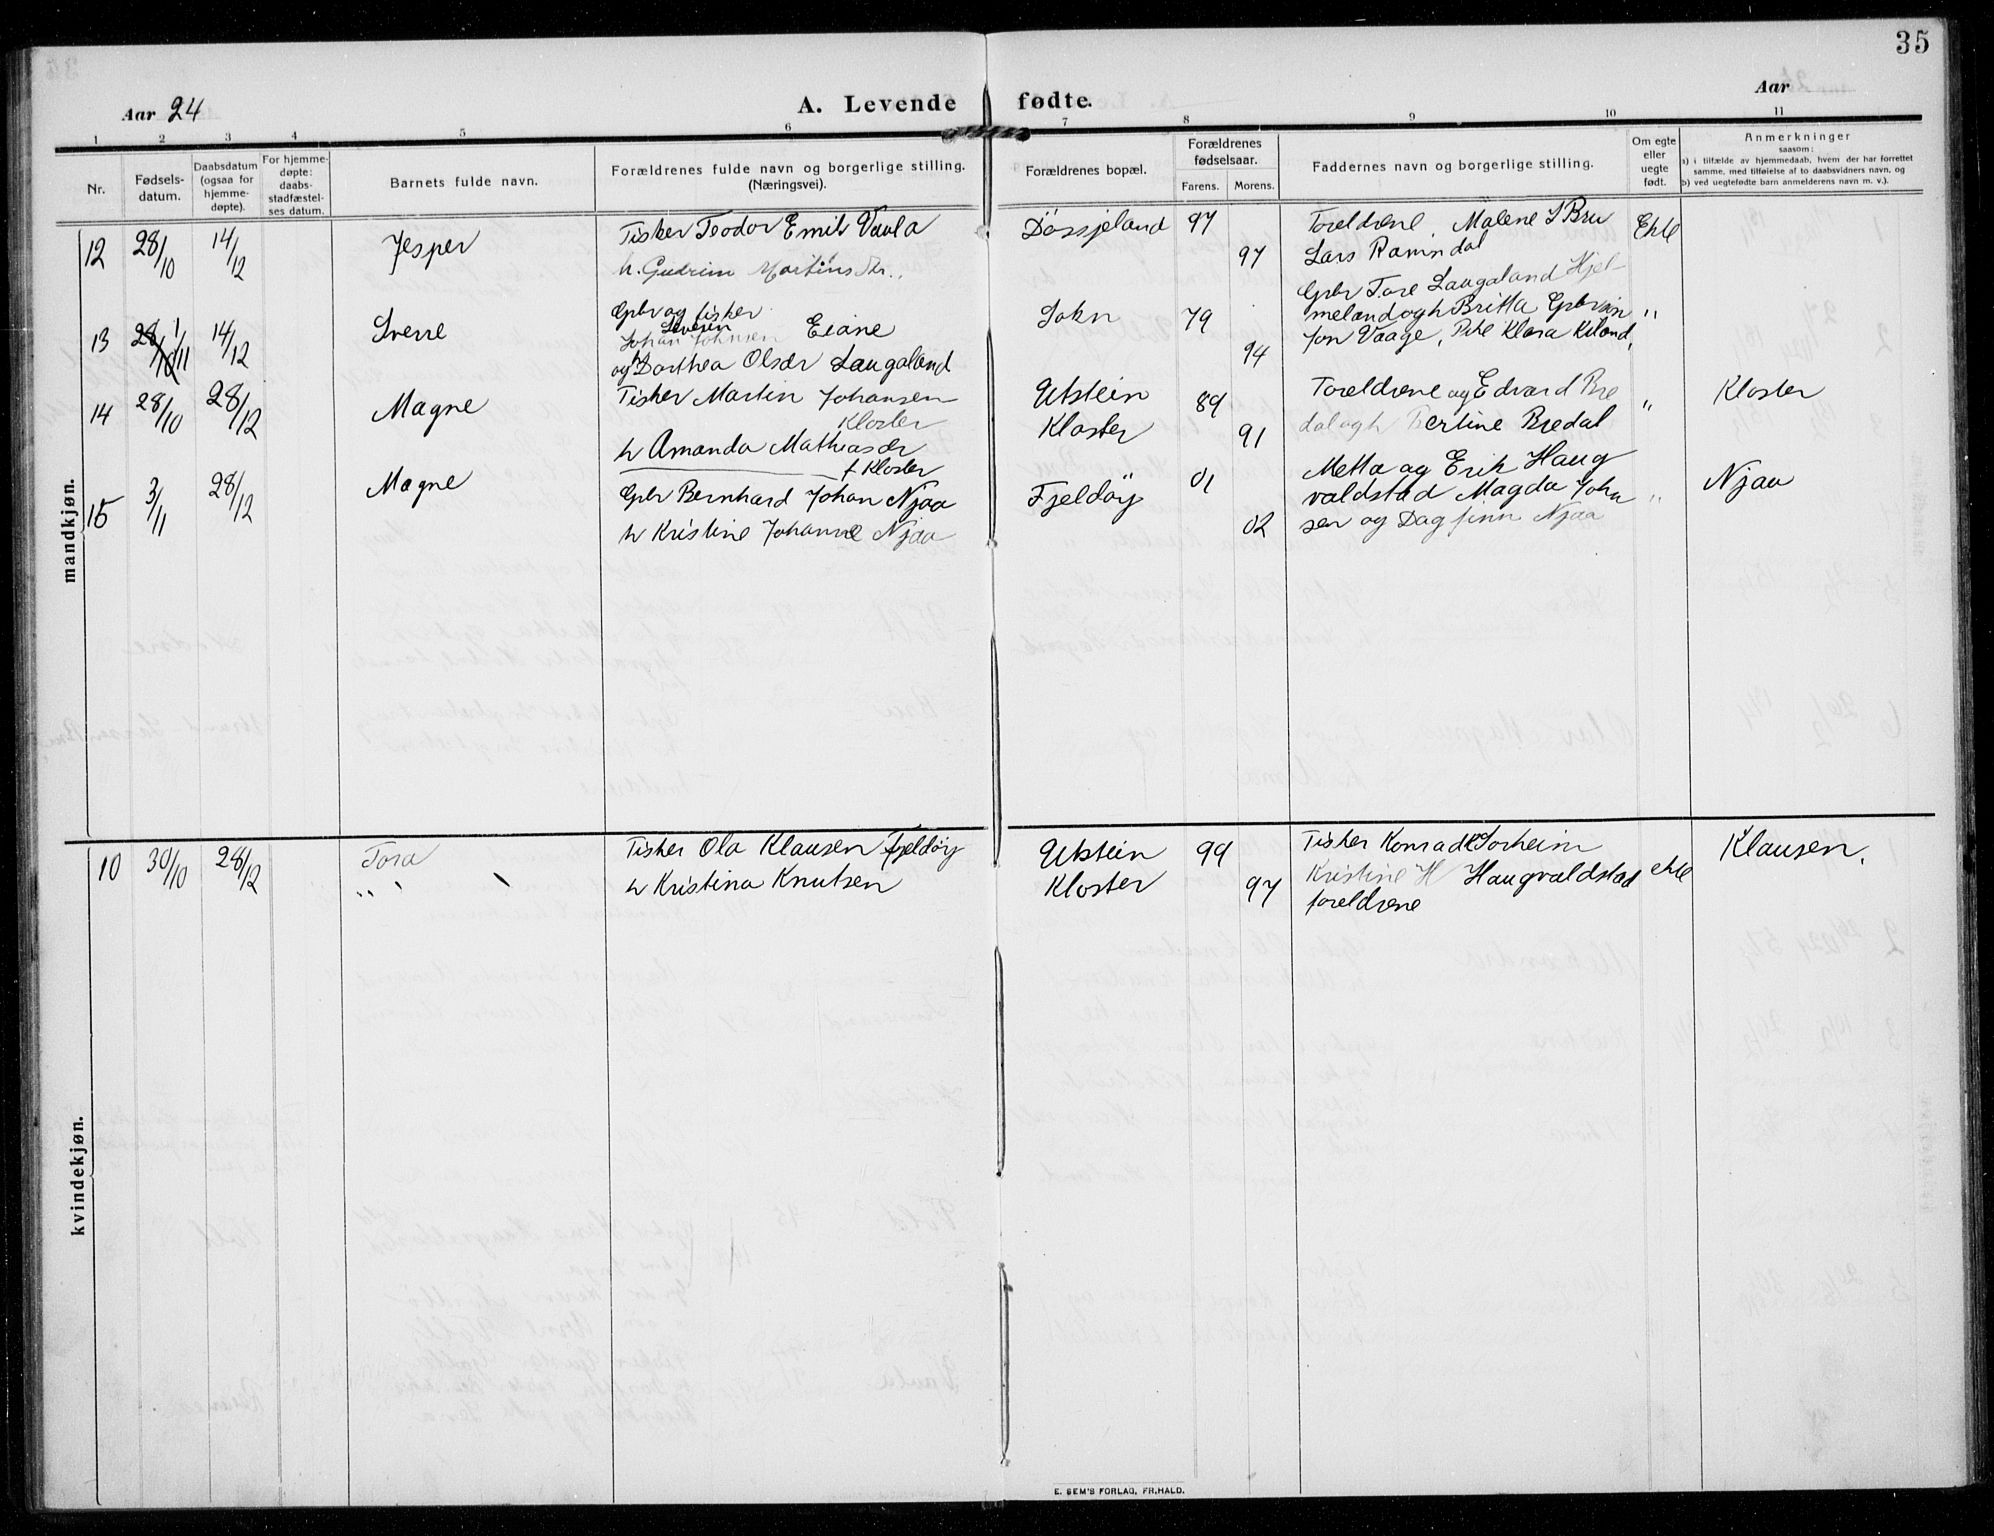 35
Aar 24
A. Levende fødte.
Aar
1 2 3 4 5 6 7 8 9 10 11
Nr.
Fødsels-
datum.
Daabsdatum
(ogsaa for
hjemme-
døpte).
For hjemme-
døpte:
daabs-
stadfæstel-
ses datum.
Barnets fulde navn.
Forældrenes fulde navn og borgerlige stilling.
(Næringsvei).
Forældrenes bopæl.
Forældrenes
fødselsaar.
Farens. Morens.
Faddernes navn og borgerlige stilling.
Om egte
eller
uegte
født.
Anmerkninger
saasom:
a) i tilfælde av hjemmedaab, hvem der har forrettet
samme, med tilføielse av to daabsvidners navn, og
b) ved uegtefødte barn anmelderens navn m. v.).
mandkjøn.
12 28/10 14/12 Jesper
Fisker Teodor Emil Vaula
h. Gudrun Martins dtr.
97
97
Foreldrene, Malene S Bru
Lars Ramndal
Ekte
13 1/11 14/12 Sverre
Gpbr og fisker
Seversen
Johan Johnsen Eiane
og h Dorthea Olsdr Laugaland
Sokn 79
94
Gpbr Tore Laugaland Hjel-
meland og h Britta Gpbrsøn
Jon Vaage, Pike Klara Kiland,
"
14 28/10 28/12 Magne
Fisker Martin Johansen
Kloster
h Amanda Mathiasdr
f Kloster
Utstein
Kloster
89
91
Foreldrene og Edvard Bre
dal og h Bertine Bredal
"
Kloster
15 3/11 28/12 Magne
Gpbr Bernhard Johan Njaa
h Kristine Johanne Njaa
Fjeldøy 01
02
Metta og Erik Haug
valdstad Magda John
sen og Dagfinn Njaa
"
Njaa
kvindekjøn.
10 30/10 28/12 Tora
Fisker Ola Klausen Fjeldøy
h Kristina Knutsen
Utstein
Kloster
99
97
Fisker Konrad K Sorheim
Kristine H Haugvaldstad
foreldrene
ekte
Klausen.
E. SEM'S FORLAG, FR.HALD.